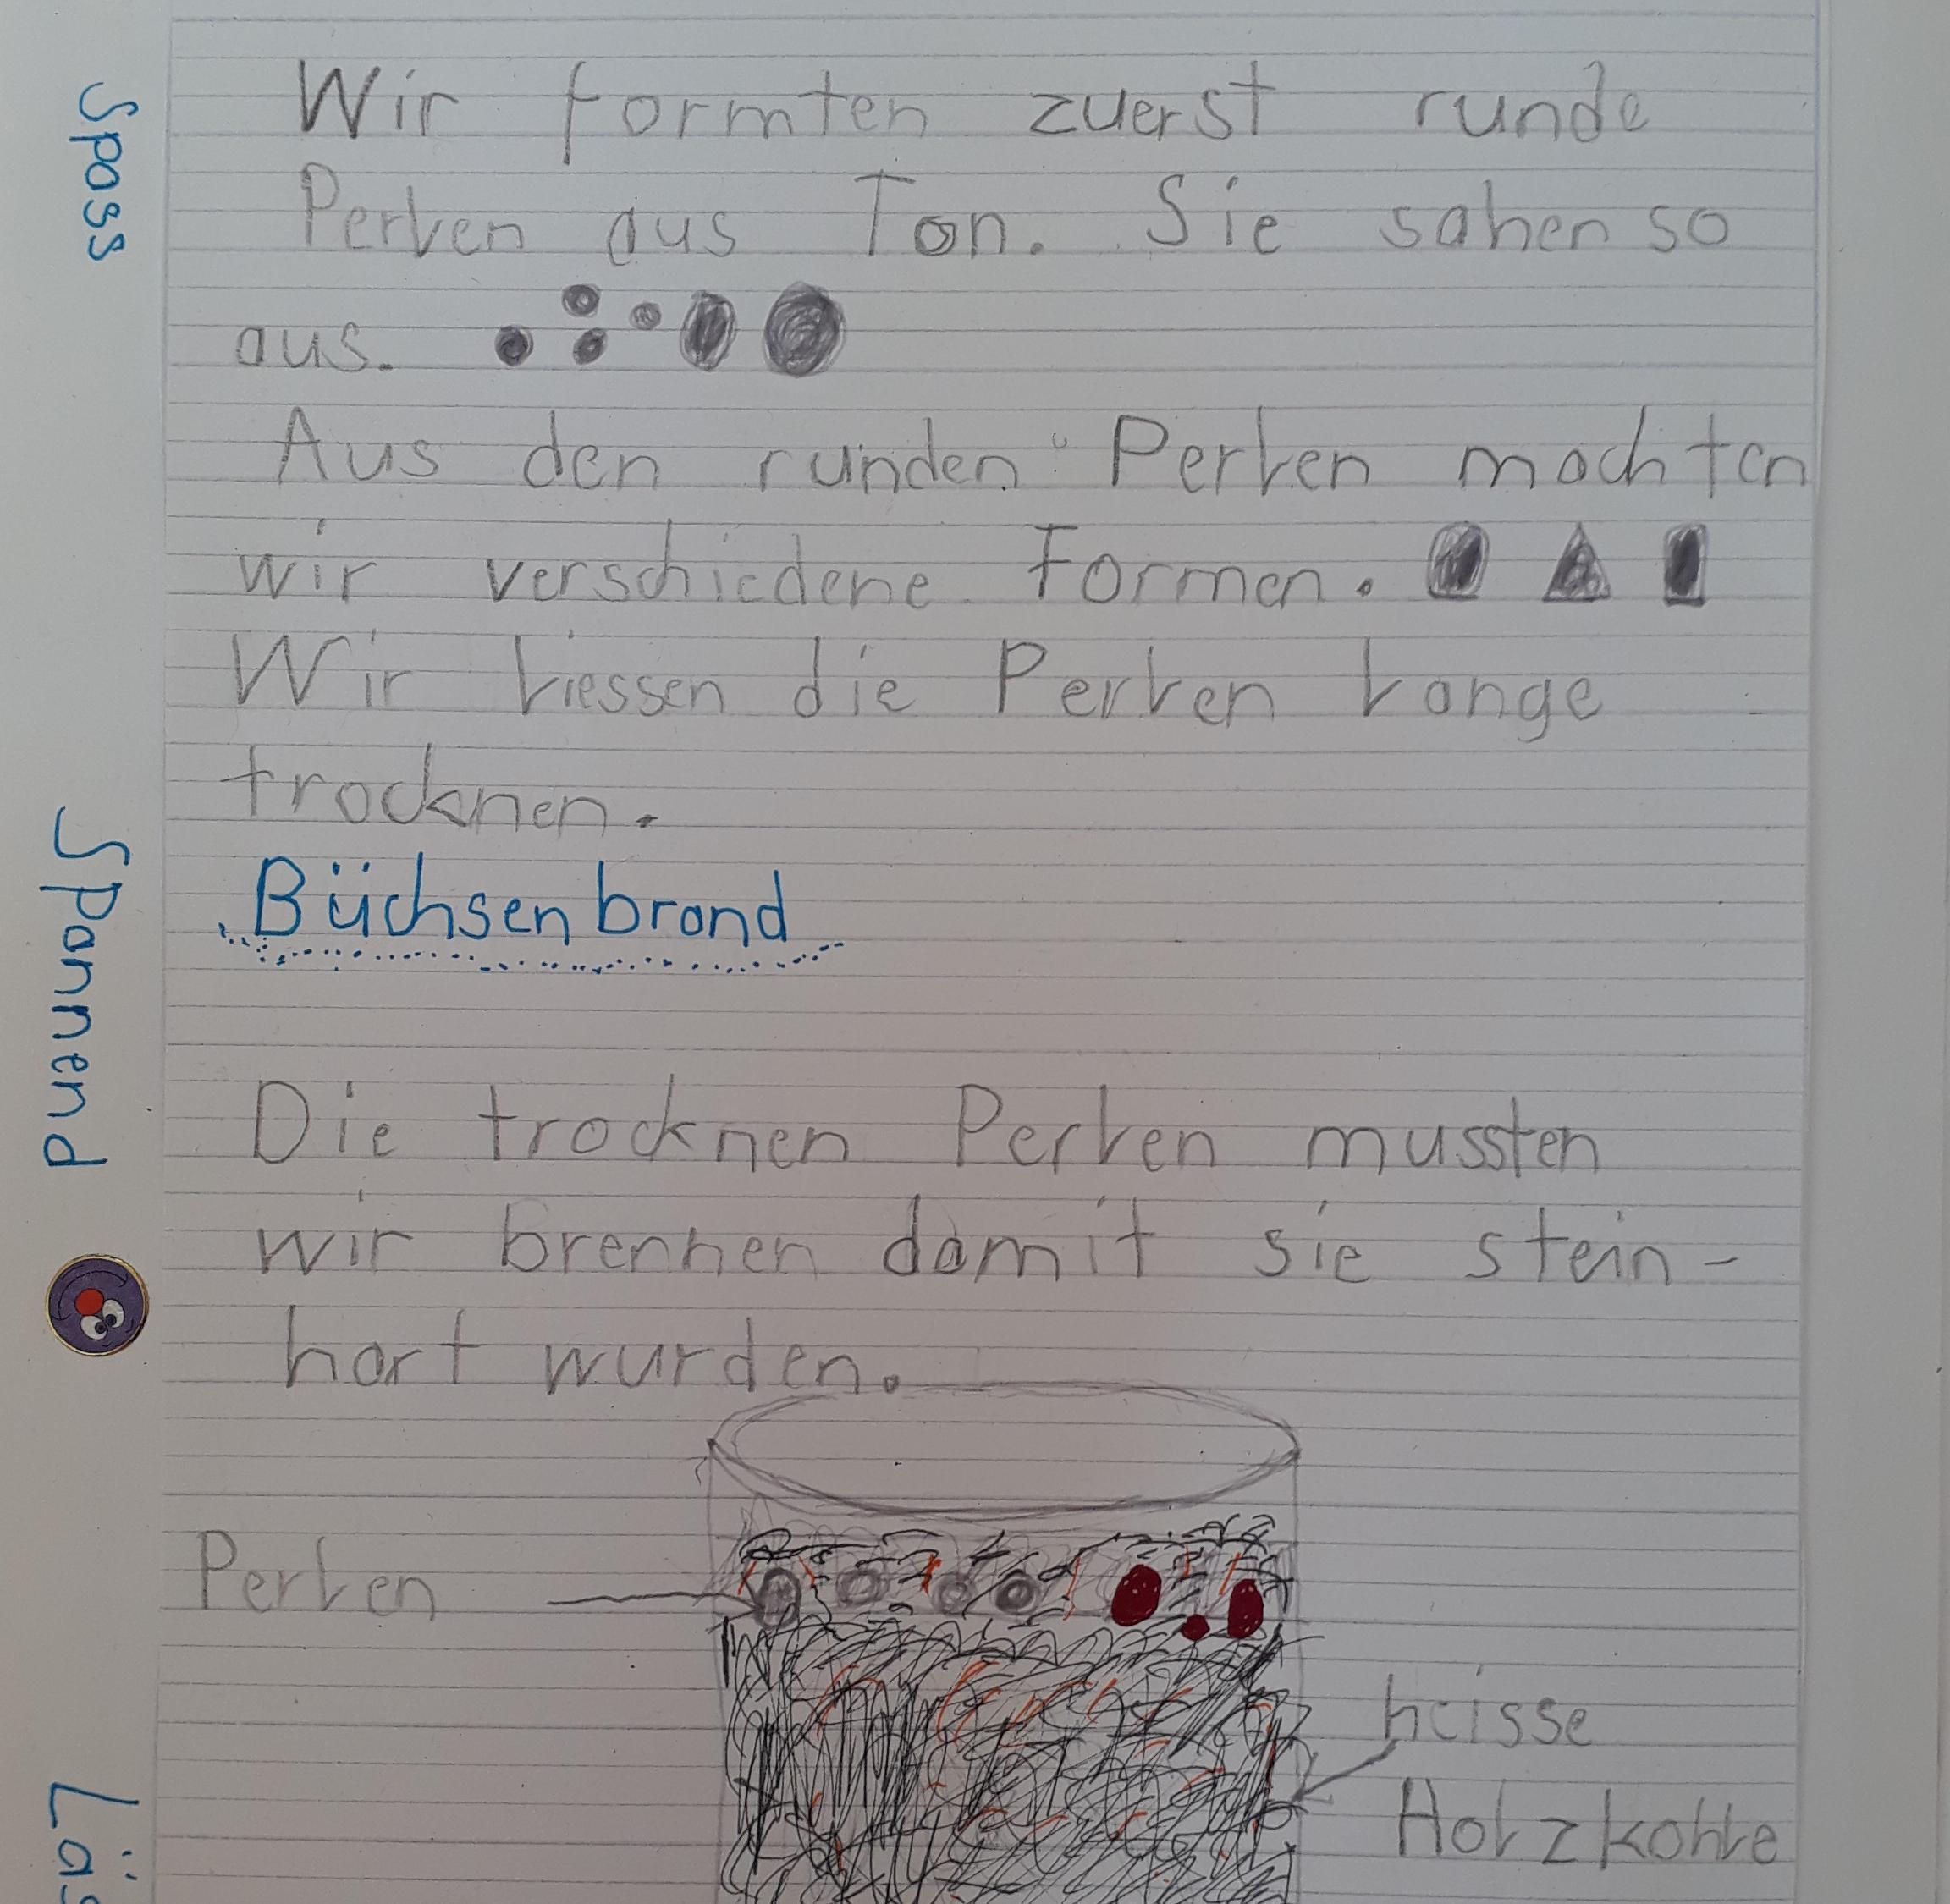 Wir formten zuerst runde
Perlen aus Ton. Sie sahen so
aus.
Aus den runden Perlen machten
wir verschiedene Formen.
Wir liessen die Perlen lange
trocknen.
Büchsenbrand
Die trocknen Perlen mussten
wir brennen damit sie stein-
hart wurden.
Perlen
heisse
Holzkohle
Spass
Spannend